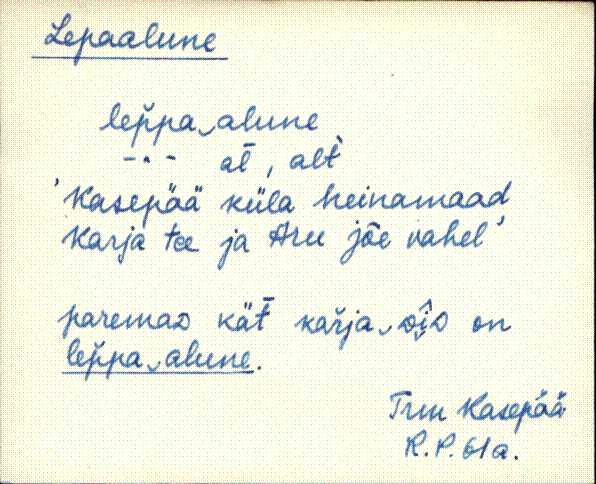 Lepaalune
lep̆pa‿alune
-"- al̄, alt̀
'Kasepää küla heinamaad
Karja tee ja Aru jõe vahel'
paremaᴅ kät̄ kařja‿ on
lep̆pa‿alune.
Trm Kasepää
R.P. 61a.